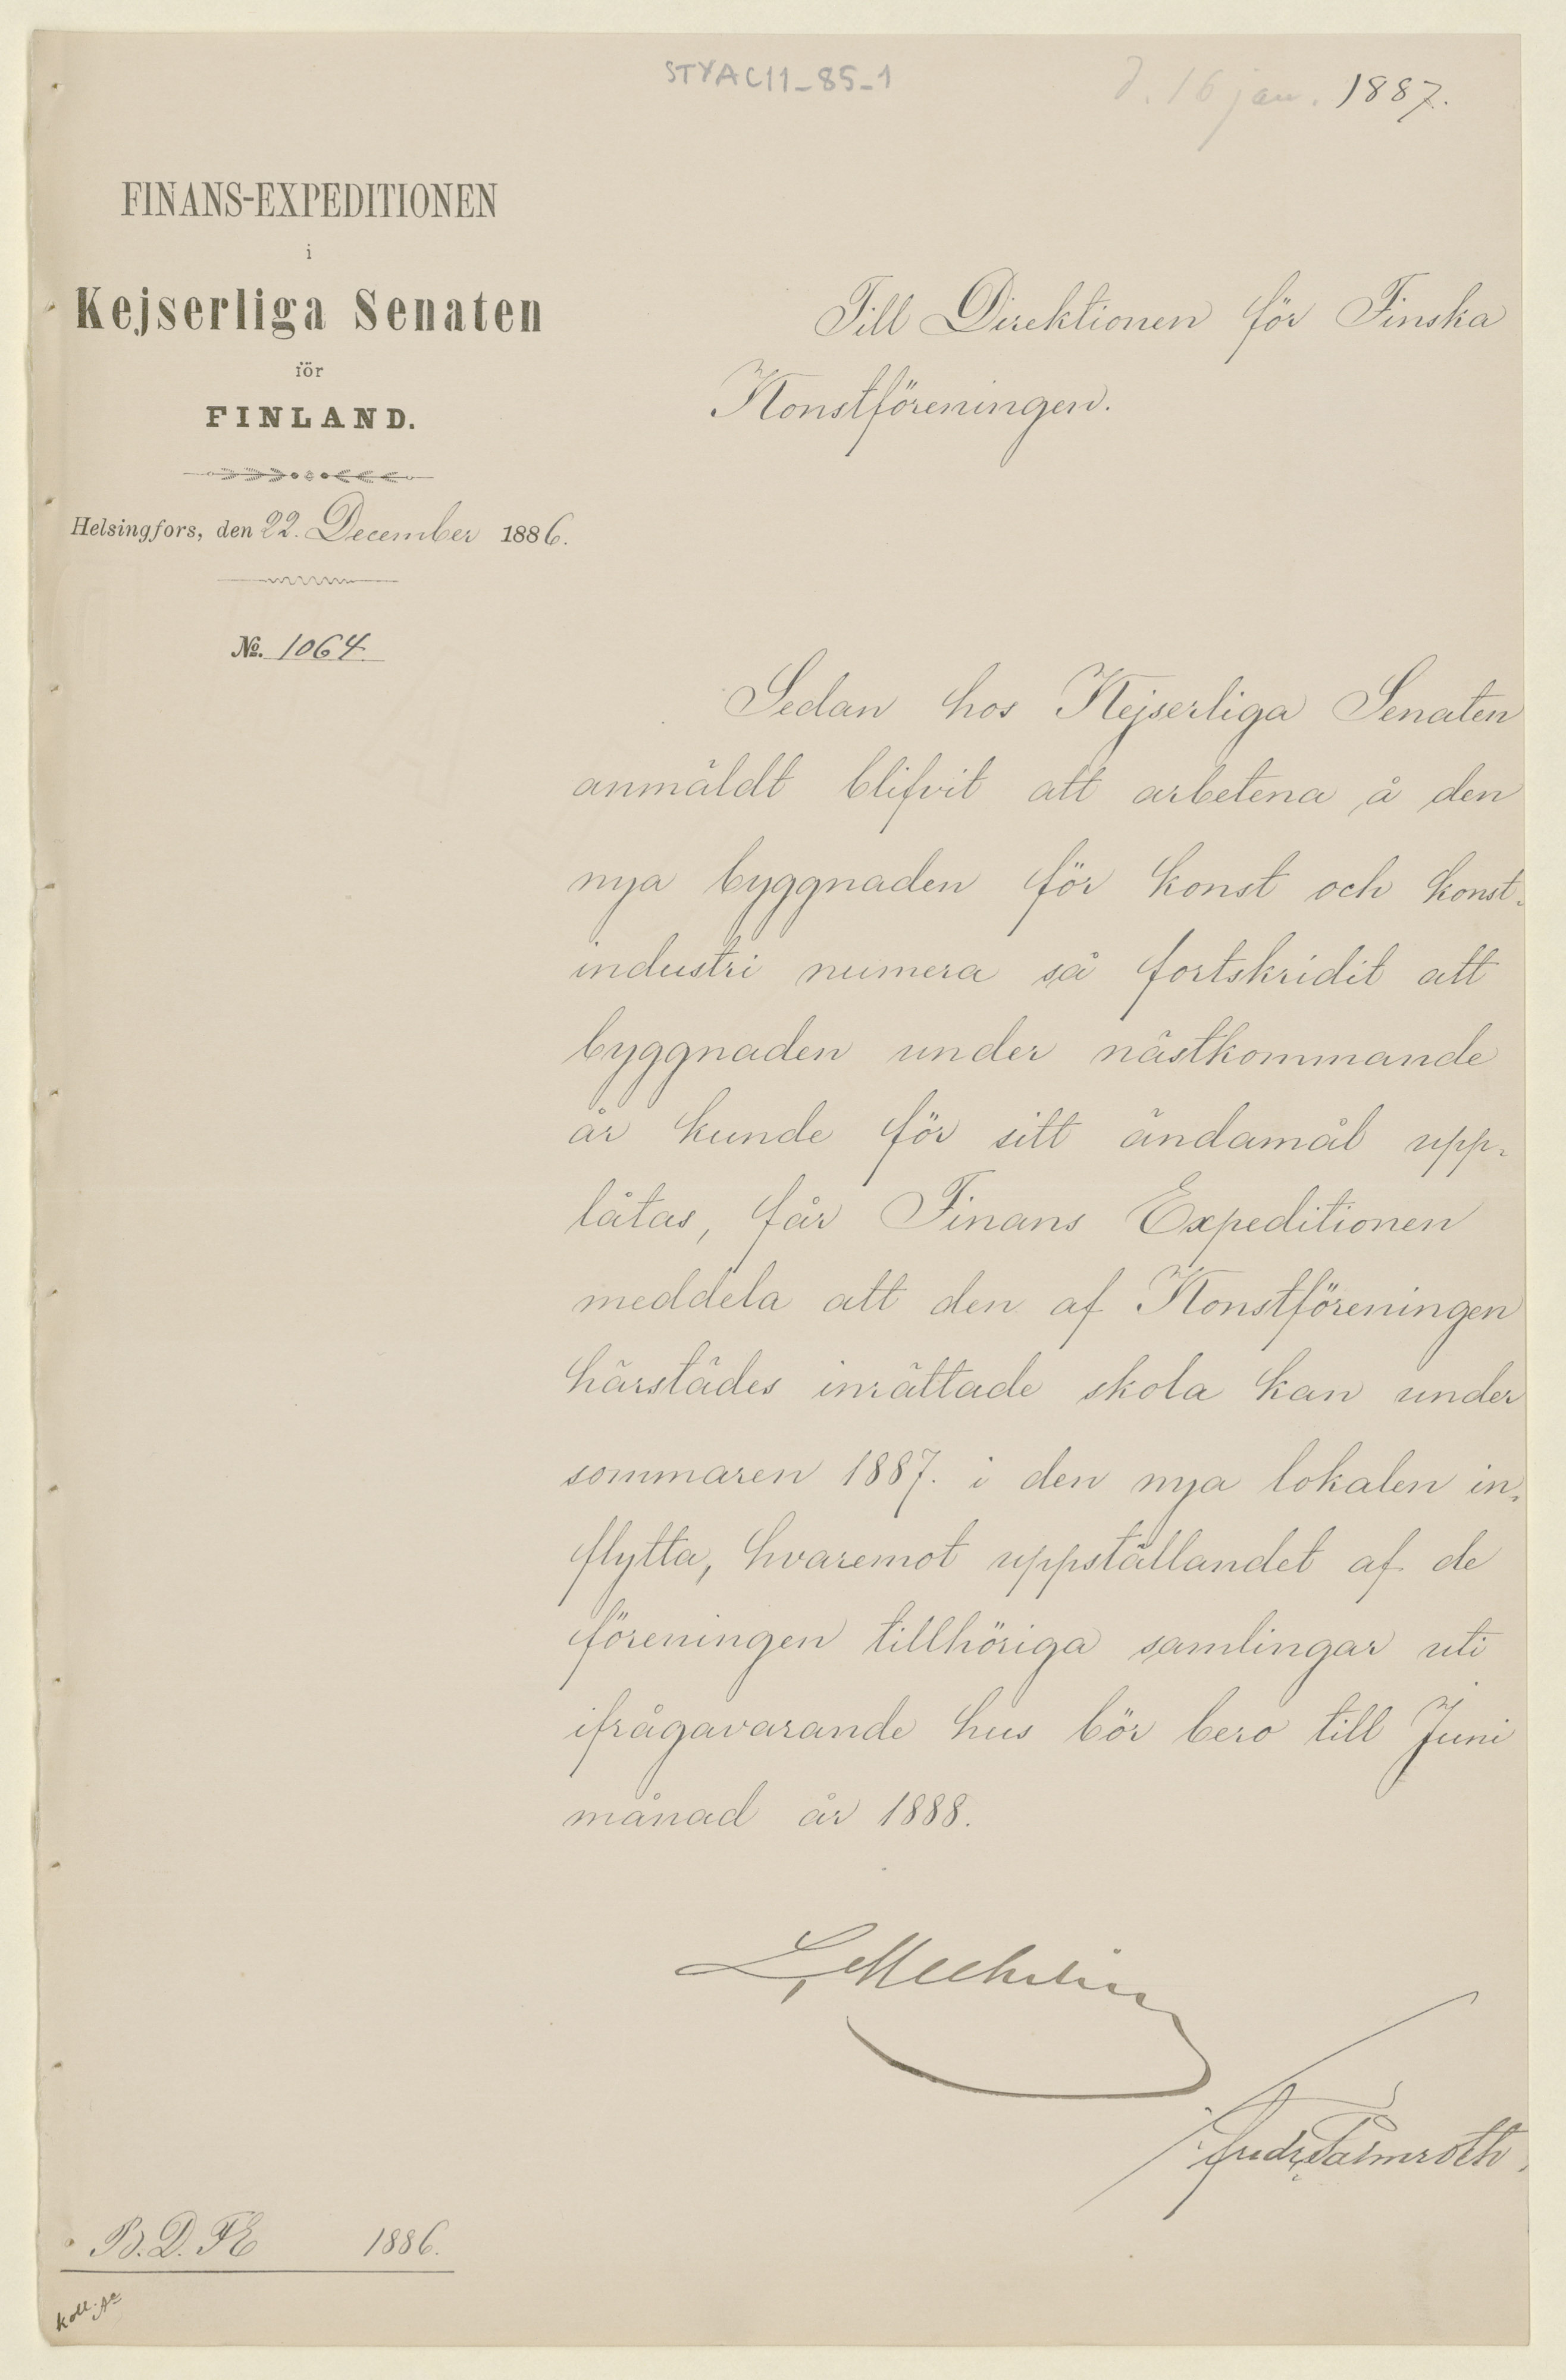 STYAC11_85_1
d. 16 jan. 1887.
FINANS-EXPEDITIONEN
i
Kejserliga Senaten
för
FINLAND.
Helsingfors, den 22. December 1886.
No. 1064
Till Direktionen för Finska
Konstföreningen.
Sedan hos Kejserliga Senaten
anmäldt blifvit att arbetena å den
nya byggnaden för konst och konst-
industri numera så fortskridit att
byggnaden under nästkommande
år kunde för sitt ändamål upp-
låtas, får Finans Expeditionen
meddela att den af Konstföreningen
härstädes inrättade skola kan under
sommaren 1887. i den nya lokalen in-
flytta, hvaremot uppställandet af de
föreningen tillhöriga samlingar uti
ifrågavarande hus bör bero till Juni
månad år 1888.
L. Mechelin
B. D. FE 1886.